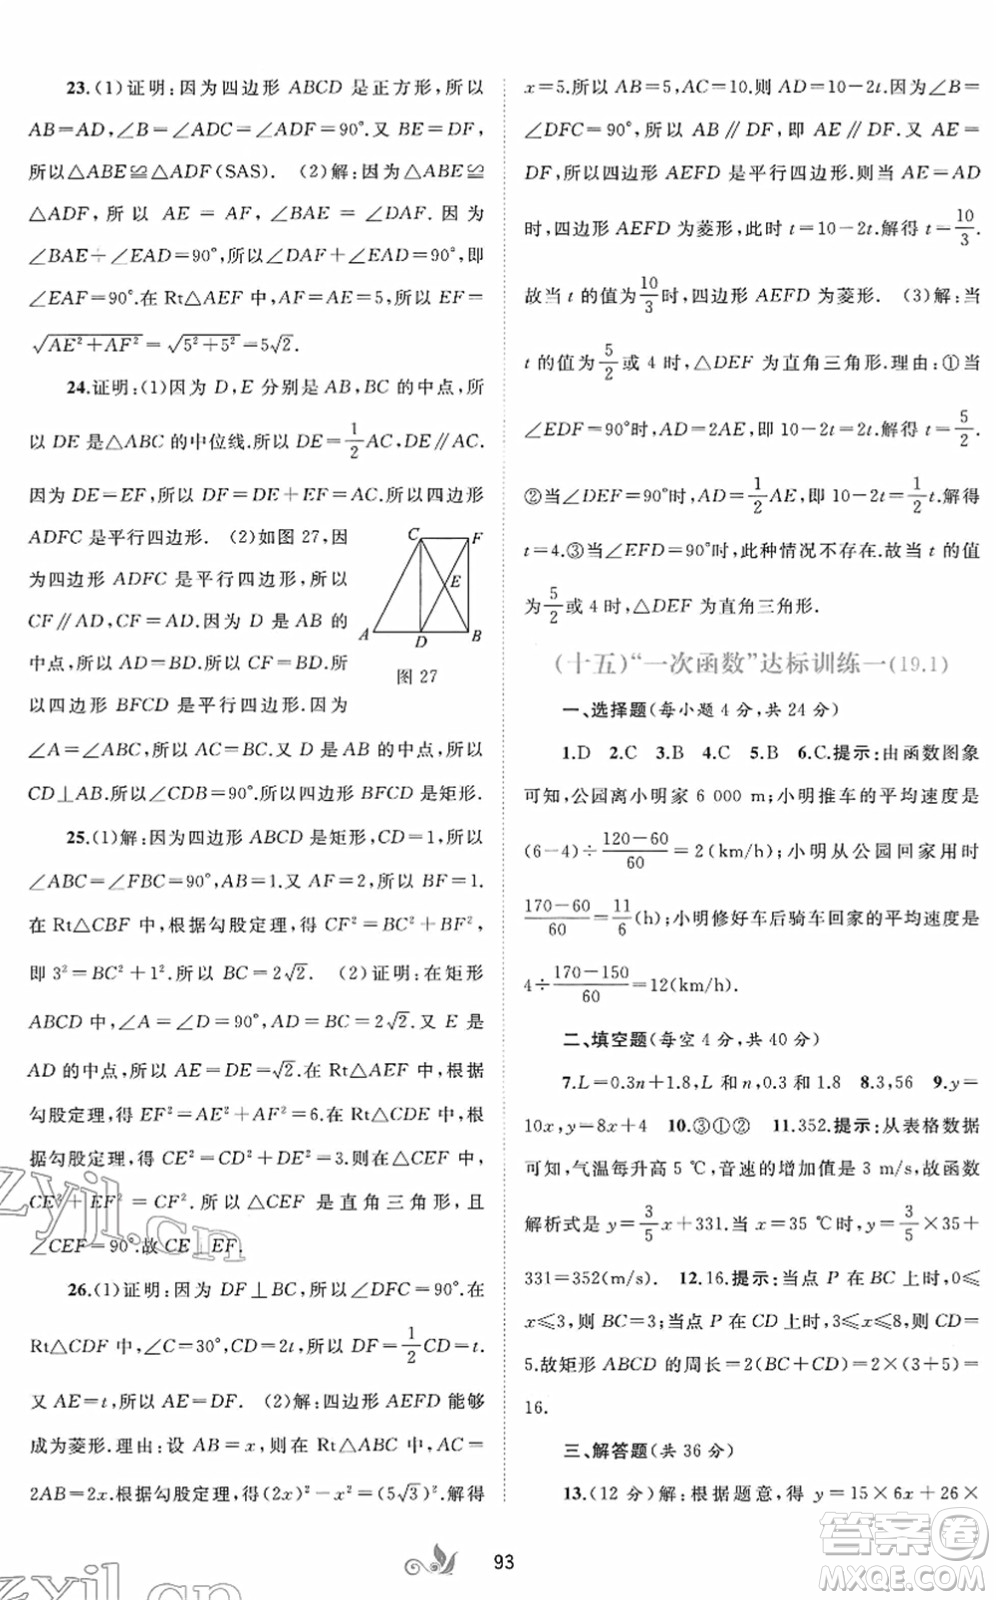 23.(1)证明:因为四边形 ABCD 是正方形,所以
AB=AD,∠B=∠ADC=∠ADF=90°.又 BE=DF,
所以△ABE≌△ADF(SAS). (2)解:因为△ABE≌
△ADF,所以 AE = AF,∠BAE = ∠DAF.因为
∠BAE+∠EAD=90°,所以∠DAF+∠EAD=90°,即
∠EAF=90°.在 Rt△AEF 中,AF=AE=5,所以 EF=
√(AE²+AF²)=√(5²+5²)=5√2.
24.证明:(1)因为 D,E 分别是 AB,BC 的中点,所
以 DE 是△ABC 的中位线.所以 DE=1/2 AC,DE∥AC.
因为 DE=EF,所以 DF=DE+EF=AC.所以四边形
ADFC 是平行四边形. (2)如图 27,因
为四边形 ADFC 是平行四边形,所以
CF∥AD,CF=AD.因为 D 是 AB 的
中点,所以 AD=BD.所以 CF=BD.所
以四边形 BFCD 是平行四边形.因为
C F E A D B
图 27
∠A=∠ABC,所以 AC=BC.又 D 是 AB 的中点,所以
CD⊥AB.所以∠CDB=90°.所以四边形 BFCD 是矩形.
25.(1)解:因为四边形 ABCD 是矩形,CD=1,所以
∠ABC=∠FBC=90°,AB=1.又 AF=2,所以 BF=1.
在 Rt△CBF 中,根据勾股定理,得 CF²=BC²+BF²,
即 3²=BC²+1².所以 BC=2√2. (2)证明:在矩形
ABCD 中,∠A=∠D=90°,AD=BC=2√2.又 E 是
AD 的中点,所以 AE=DE=√2.在 Rt△AEF 中,根据
勾股定理,得 EF²=AE²+AF²=6.在 Rt△CDE 中,根
据勾股定理,得 CE²=CD²+DE²=3.在△CEF 中,
CE²+EF²=CF².所以△CEF 是直角三角形,且
∠CEF=90°.故 CE⊥EF.
26.(1)证明:因为 DF⊥BC,所以∠DFC=90°.在
Rt△CDF 中,∠C=30°,CD=2t,所以 DF=1/2 CD=t.
又 AE=t,所以 AE=DF. (2)解:四边形 AEFD 能够
成为菱形.理由:设 AB=x,则在 Rt△ABC 中,AC=
2AB=2x.根据勾股定理,得(2x)²-x²=(5√3)².解得
x=5.所以 AB=5,AC=10.则 AD=10-2t.因为∠B=
∠DFC=90°,所以 AB∥DF,即 AE∥DF.又 AE=
DF,所以四边形 AEFD 是平行四边形.则当 AE=AD
时,四边形 AEFD 为菱形,此时 t=10-2t.解得 t=10/3.
故当 t 的值为10/3时,四边形 AEFD 为菱形. (3)解:当
t 的值为5/2或 4 时,△DEF 为直角三角形.理由:①当
∠EDF=90°时,AD=2AE,即 10-2t=2t.解得 t=5/2.
②当∠DEF=90°时,AD=1/2 AE,即 10-2t=1/2 t.解得
t=4.③当∠EFD=90°时,此种情况不存在.故当 t 的值
为5/2或 4 时,△DEF 为直角三角形.
(十五)“一次函数”达标训练一(19.1)
一、选择题(每小题 4 分,共 24 分)
1.D 2.C 3.B 4.C 5.B 6.C.提示:由函数图象
可知,公园离小明家 6 000 m;小明推车的平均速度是
(6-4)÷(120-60)/60=2(km/h);小明从公园回家用时
(170-60)/60=11/6(h);小明修好车后骑车回家的平均速度是
4÷(170-150)/60=12(km/h).
二、填空题(每空 4 分,共 40 分)
7.L=0.3n+1.8,L 和 n,0.3 和 1.8 8.3,56 9.y=
10x,y=8x+4 10.③①② 11.352.提示:从表格数据
可知,气温每升高 5 ℃,音速的增加值是 3 m/s,故函数
解析式是 y=3/5 x+331.当 x=35 ℃时,y=3/5×35+
331=352(m/s). 12.16.提示:当点 P 在 BC 上时,0≤
x≤3,则 BC=3;当点 P 在 CD 上时,3≤x≤8,则 CD=
5.故矩形 ABCD 的周长=2(BC+CD)=2×(3+5)=
16.
三、解答题(共 36 分)
13.(12 分)解:根据题意,得 y=15×6x+26×
93
zyjl.cn
zyjl.cn
答案卷
MXQE.COM